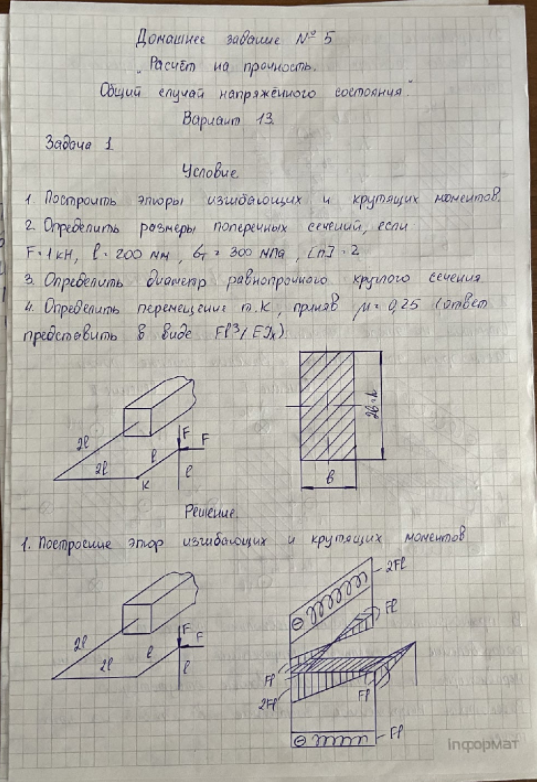 Домашнее задание № 5
"Расчёт на прочность.
Общий случай напряжённого состояния".
Вариант 13.
Задача 1
Условие
1. Построить эпюры изгибающих и крутящих моментов.
2. Определить размеры поперечных сечений, если
F = 1 кН, l = 200 мм, σт = 300 МПа, [n] = 2
3. Определить диаметр равнопрочного круглого сечения
4. Определить перемещение т. K, приняв μ = 0,25 (ответ
представить в виде Fl³/EJx)
2l
2l
l
F
F
l
K
2b=h
b
Решение.
1. Построение эпюр изгибающих и крутящих моментов
2l
2l
l
F
F
l
2Fl
Fl
Fl
2Fl
Fl
Fl
інформат